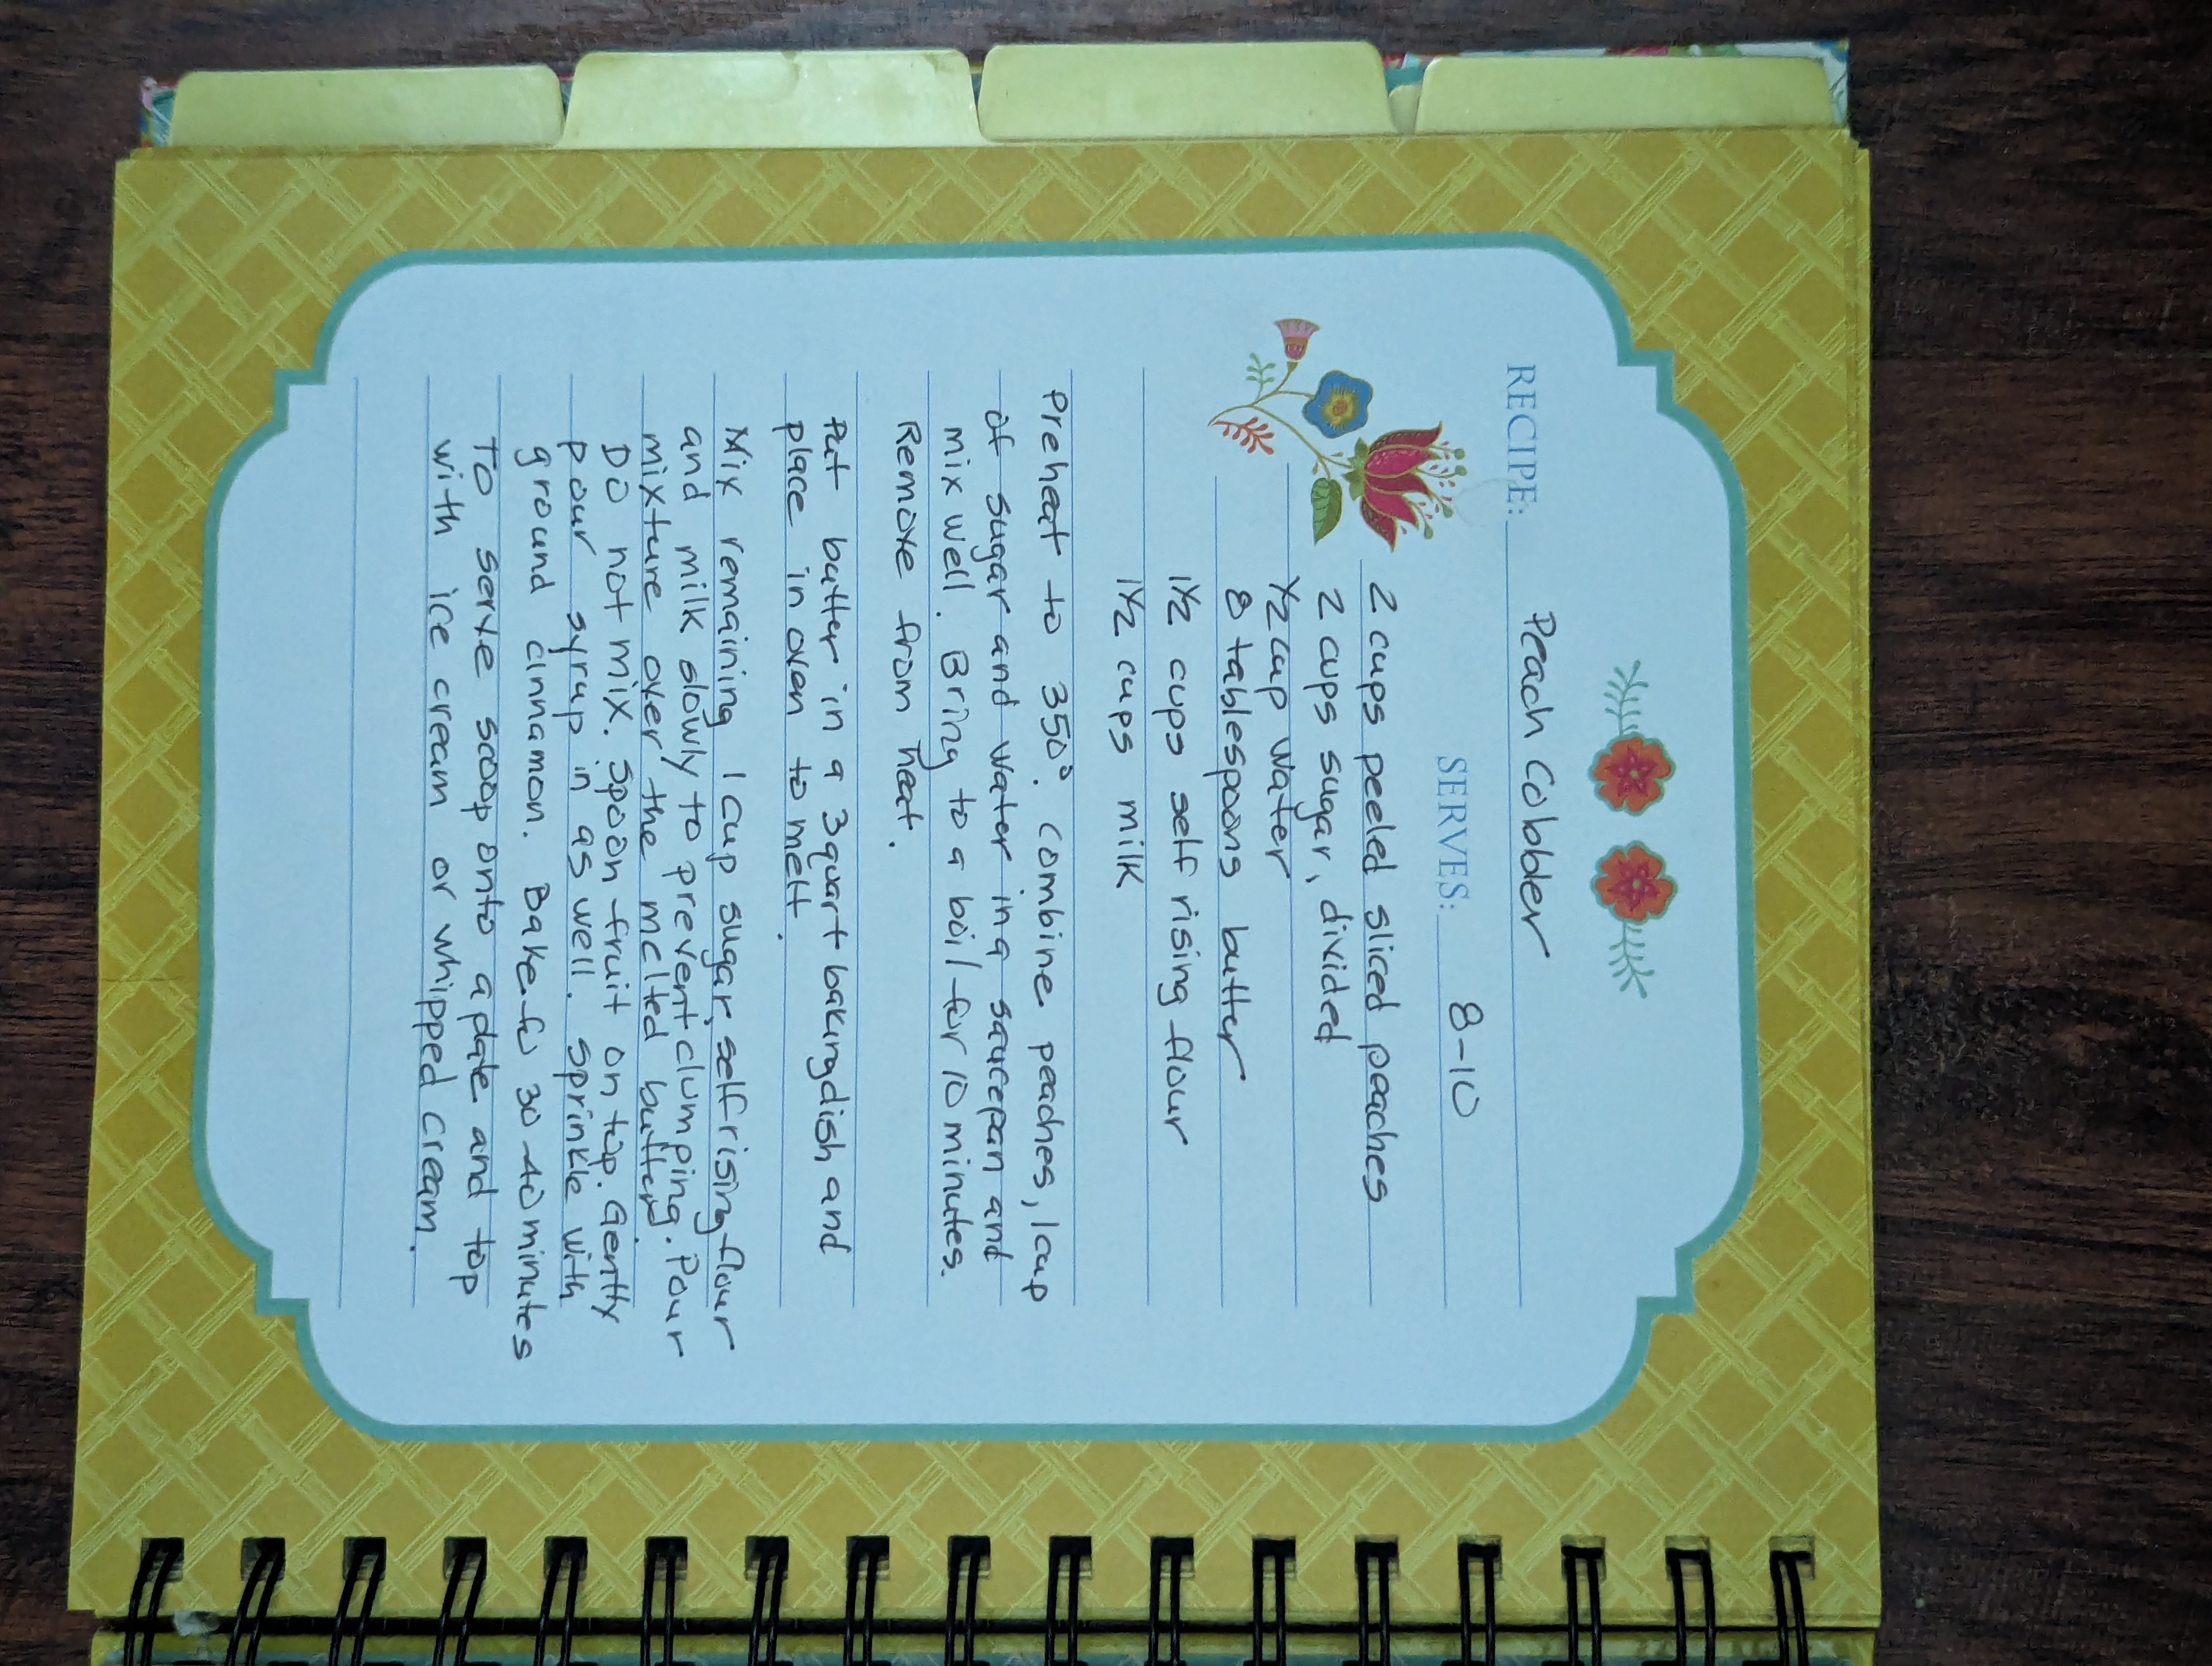 RECIPE: Peach Cobbler
SERVES: 8-10
2 cups peeled sliced peaches
2 cups sugar, divided
1/2 cup water
8 tablespoons butter
1 1/2 cups self rising flour
1 1/2 cups milk
Preheat to 350°. Combine peaches, 1 cup
of sugar and water in a saucepan and
mix well. Bring to a boil for 10 minutes.
Remove from heat.
Put butter in a 3 quart baking dish and
place in oven to melt.
Mix remaining 1 cup sugar, self rising flour
and milk slowly to prevent clumping. Pour
mixture over the melted butter.
Do not mix. Spoon fruit on top. Gently
pour syrup in as well. Sprinkle with
ground cinnamon. Bake for 30-40 minutes
To serve scoop onto a plate and top
with ice cream or whipped cream.